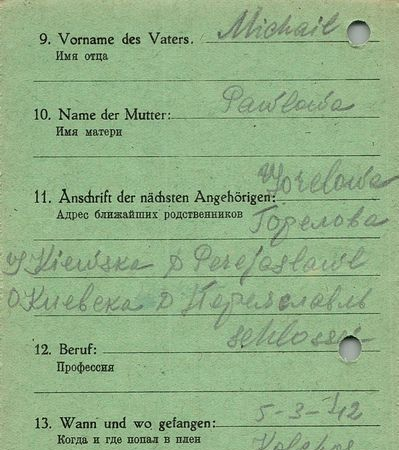 9. Vorname des Vaters. Michail
Имя отца
10. Name der Mutter: Pawlowa
Имя матери
Gorelowa
11. Anschrift der nächsten Angehörigen:
Адрес ближайших родственников Горелова
Kiewska D Perejaslawl
О Киевска D Переяславль
schlosser
12. Beruf:
Профессия
13. Wann und wo gefangen: 5-3-42
Когда и где попал в плен